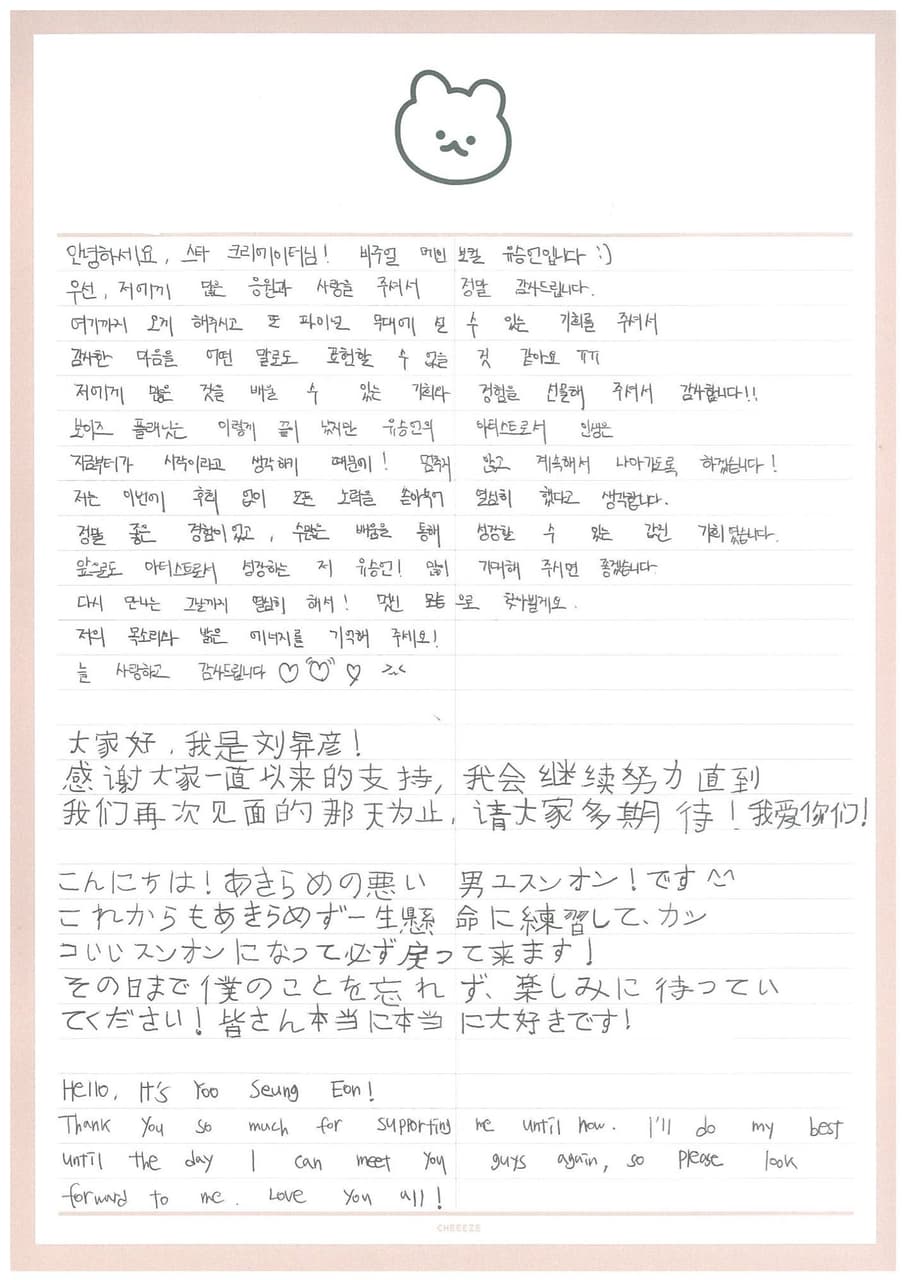 안녕하세요, 스타 크리에이터님! 비주얼 메인 보컬 유승언입니다 :)
우선, 저에게 많은 응원과 사랑을 주셔서 정말 감사드립니다.
여기까지 오게 해주시고 또 파이널 무대에 설 수 있는 기회를 주셔서
감사한 마음을 어떤 말로도 표현할 수 없을 것 같아요 ㅠㅠ
저에게 많은 것을 배울 수 있는 기회와 경험을 선물해 주셔서 감사합니다!!
보이즈 플래닛은 이렇게 끝이 났지만 유승언의 아티스트로서 인생은
지금부터가 시작이라고 생각하기 때문에! 멈추지 않고 계속해서 나아가도록 하겠습니다!
저는 이번에 후회 없이 모든 노력을 쏟아부어 열심히 했다고 생각합니다.
정말 좋은 경험이었고, 수많은 배움을 통해 성장할 수 있는 값진 기회였습니다.
앞으로도 아티스트로서 성장하는 저 유승언! 많이 기대해 주시면 좋겠습니다.
다시 만나는 그날까지 열심히 해서! 멋진 모습으로 찾아뵐게요.
저의 목소리와 밝은 에너지를 기억해 주세요!
늘 사랑하고 감사드립니다 ♡♡♡ >.<
大家好, 我是刘昇彦!
感谢大家一直以来的支持, 我会继续努力直到
我们再次见面的那天为止, 请大家多期待! 我爱你们!
こんにちは! あきらめの悪い 男ユスンオン! です ^^
これからもあきらめず一生懸命に練習して、カッ
コいいスンオンになって必ず戻って来ます!
その日まで僕のことを忘れず、楽しみに待ってい
てください! 皆さん本当に本当に大好きです!
Hello, It's Yoo Seung Eon!
Thank you so much for supporting me until now. I'll do my best
until the day I can meet you guys again, so please look
forward to me. Love you all!
CHEEEZE